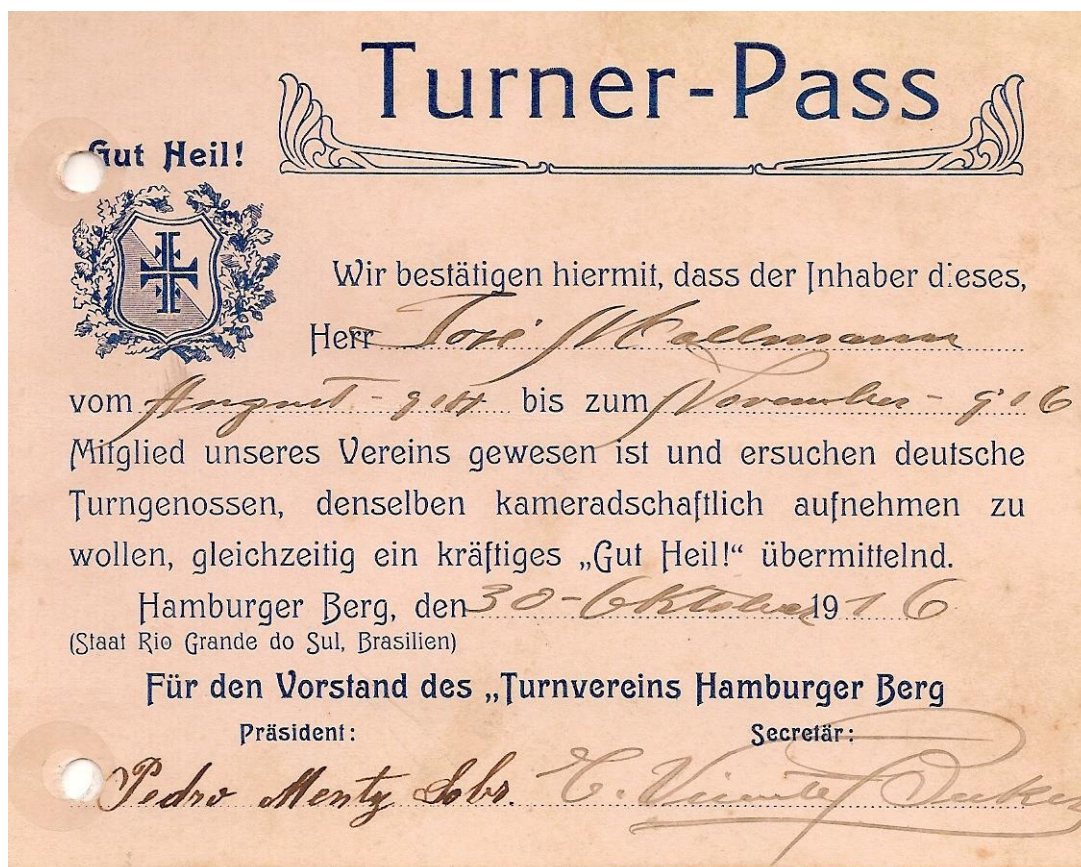 Turner-Pass
Gut Heil!
Wir bestätigen hiermit, dass der Inhaber dieses,
Herr José Mallmann
vom August - 914 bis zum November - 916
Mitglied unseres Vereins gewesen ist und ersuchen deutsche
Turngenossen, denselben kameradschaftlich aufnehmen zu
wollen, gleichzeitig ein kräftiges „Gut Heil!“ übermittelnd.
Hamburger Berg, den 30 - Oktober 1916
(Staat Rio Grande do Sul, Brasilien)
Für den Vorstand des „Turnvereins Hamburger Berg
Präsident: Secretär:
Pedro Mentz Sobr. C. Vicente